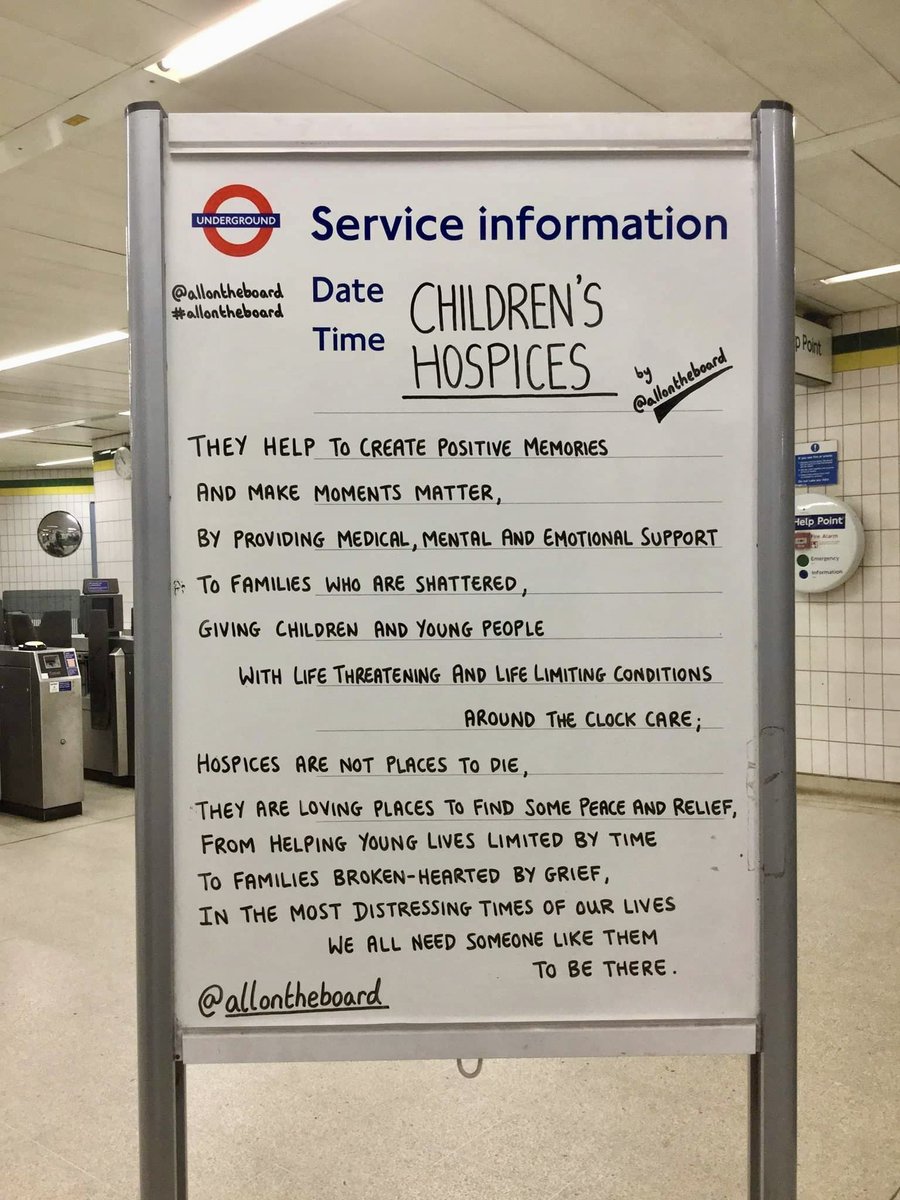 UNDERGROUND
Service information
@allontheboard
#allontheboard
Date
Time
CHILDREN'S
HOSPICES
by
@allontheboard
THEY HELP TO CREATE POSITIVE MEMORIES
AND MAKE MOMENTS MATTER,
BY PROVIDING MEDICAL, MENTAL AND EMOTIONAL SUPPORT
TO FAMILIES WHO ARE SHATTERED,
GIVING CHILDREN AND YOUNG PEOPLE
WITH LIFE THREATENING AND LIFE LIMITING CONDITIONS
AROUND THE CLOCK CARE;
HOSPICES ARE NOT PLACES TO DIE,
THEY ARE LOVING PLACES TO FIND SOME PEACE AND RELIEF,
FROM HELPING YOUNG LIVES LIMITED BY TIME
TO FAMILIES BROKEN-HEARTED BY GRIEF,
IN THE MOST DISTRESSING TIMES OF OUR LIVES
WE ALL NEED SOMEONE LIKE THEM
TO BE THERE.
@allontheboard
p Point
Help Point
Fire Alarm
Emergency
Information